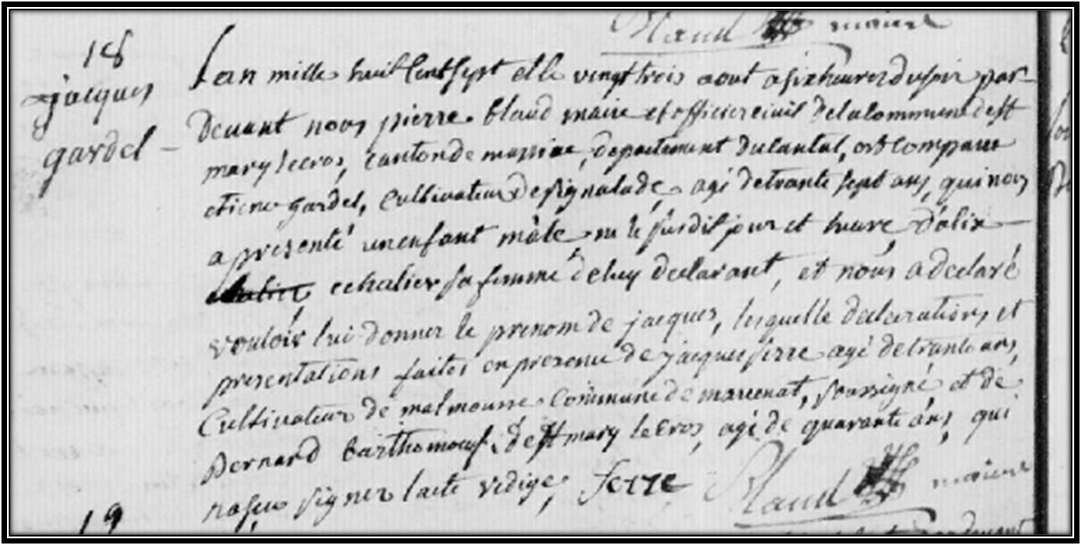 Blaud maire
18
jacques
gardel
Lan mille huit cent sept et le vingt trois aout a six heures du soir par
devant nous pierre blaud maire et officier civil de la commune de st
mary le cros, canton de massiac, departement du cantal, est comparu
etiene gardel, cultivateur de signalade, agé de trante sept ans, qui nous
a presenté un enfant mâle né le susdit jour et heure, d'alix
echalier sa femme de luy declarant, et nous a declaré
vouloir lui donner le prenom de jacques, lesquelle declarations et
presentations faites en presence de jacques serre agé de trante ans,
Cultivateur de malmousse Commune de marcenat, soussigné et de
Bernard barthomeuf, de st mary le cros, agé de quarante ans, qui
na su signer lacte redigé, Serre Blaud maire
19